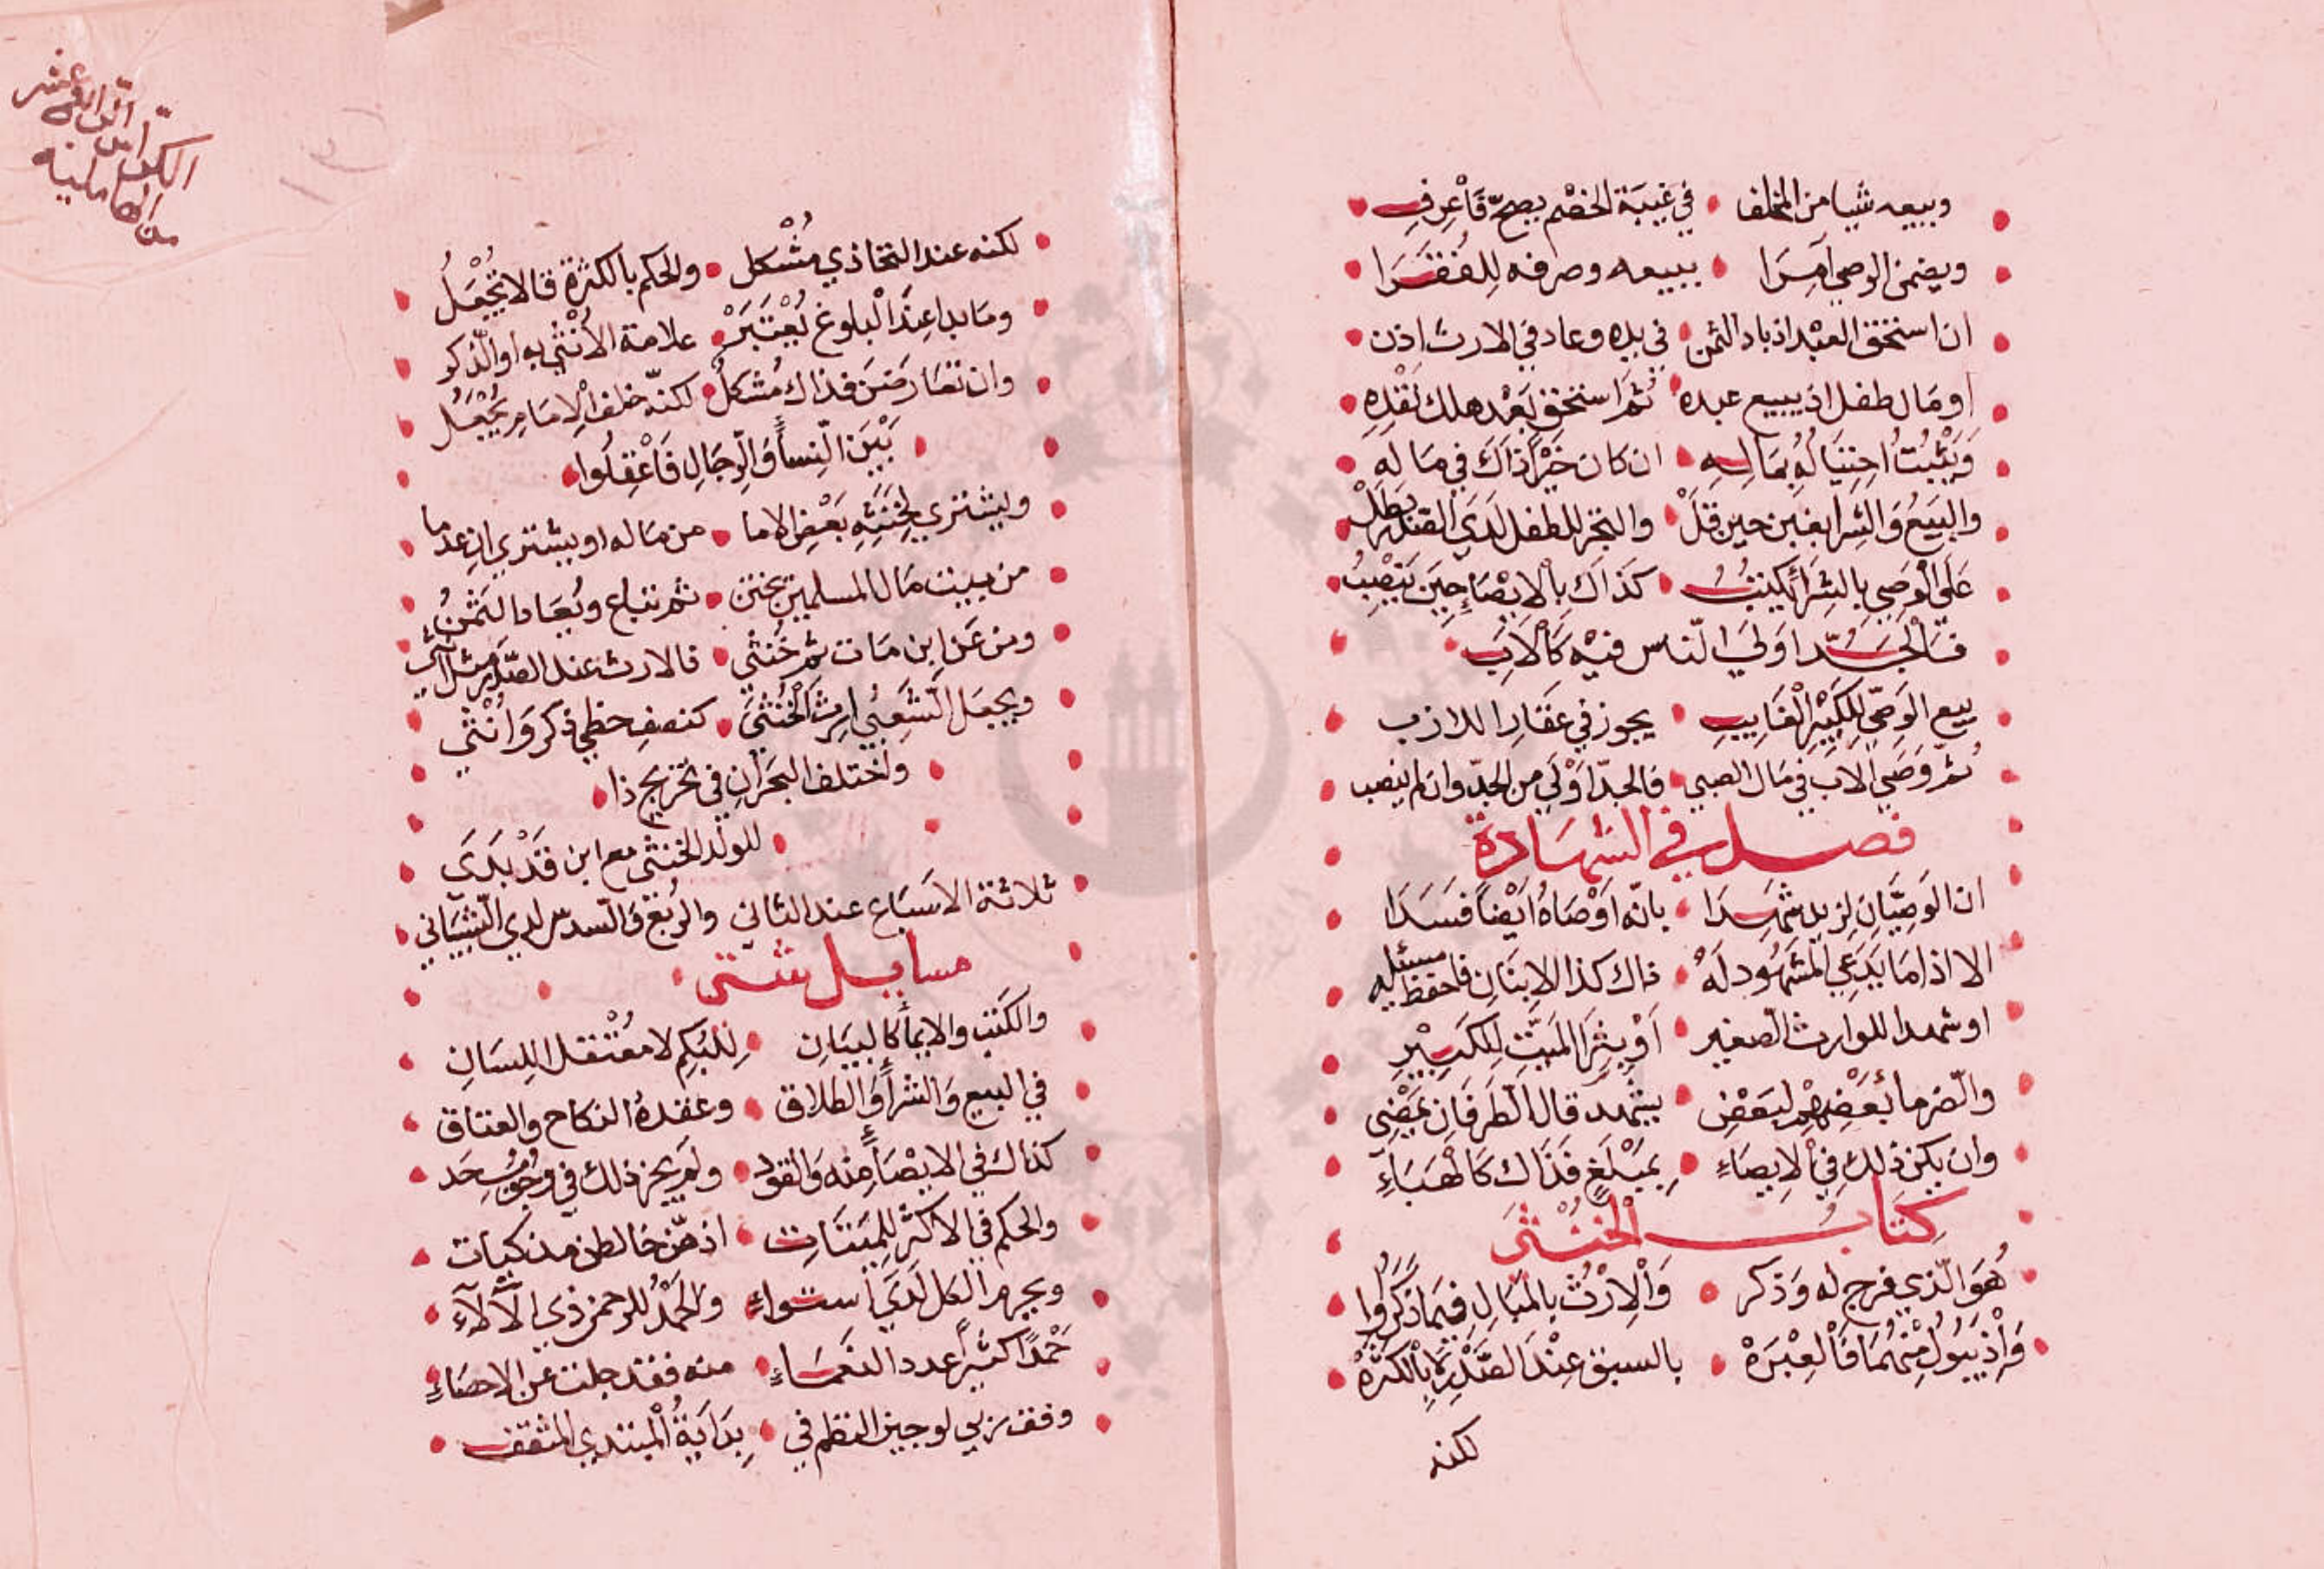 وبيعه شيا من المخلف في غيبة الخصم يصحّ فَاعْرِفِ
ويضمن الوصي آمِرَا ببيعه وصرفه لِلفُقَرَا
ان استحق العبْد اذ باد الثمن في يده وعاد في الارث اذن
او مال طفل اذ يبيع عبده ثُمَّ استحق بَعْد هلك نَقْدِهِ
وَيَثْبُتُ لهُ بمَالِهِ ان كان خَيْراً ذَاكَ في مَالِهِ
والبَيعُ وَالشِرا بغبن حين قلّ والتجر للطفل لَدَى الصَّدْر بَطَلْ
عَلَى الْوَصِي بِالشِرَا يَكْتُبُ كَذَاكَ بِالْايصَاءِ حِينَ يَنْصِبُ
فالجَدّ اَولَى النّاس فيْه كَالْاَبِ
بيع الوَصِّي لِلكَبِيْرِ الْغَايبِ يجوز في عَقَارا للاَّزِب
ثمّ وَصَي الاب في مَال الصبي فالجدّ اَوْلَي من الجدّ وان لم ينصب
فصل في الشهَادَة
ان الوَصِيَّانِ لِزيد شَهِدَا بانّه اَوْصَاهُ اَيْضاً فَسَدَا
الا اذا مَا يَدَّعِي الْمَشْهُود لَهُ ذاك كذا الابنَانِ فاحفظ مسئله
او شهدا للوارث الصغير اَوْ بِثَرَا المَيِّتِ لِلكَبِيْرِ
والضرما بَعْضِهِم لبَعْض بيشهد قال الطَرفَانِ يَمْضِى
وان يكن ذلك في الْايصَاءِ بِمَبْلَغٍ فَذَاك كَالْهَبَاءِ
كِتَابُ الْخُنْثَى
هُوَ الّذي فرج له وَذكر وَالْاِرْثُ بِالمَبَالِ فيمَا ذَكَرُوا
فَاِذْ يَبُولُ مِنْهُمَا فَالْعِبْرَهْ بالسبق عِنْدَ الصَّدْرِ لَا بِالكَثرهْ
لكنه
لكنه عند التحاذي مُشْكل والحكم بالكثرة قالا تُجْعَلُ
ومَا بدا عِندَ الْبلوغ يُعْتَبَرْ علامة الاُنْثى به او الذّكر
وان تعَارضَنَ فذاك مُشكلُ لكنّه خلف الْاِمَامِ يُجْعَلُ
بَيْنَ النِّسأِ وَالرِّجَالِ فَاعْقِلُوا
ويشتري لِخَتْنِهِ بَعْض الاما من مَاله او يشتري ان عدما
من بيت مال المسلمين تختن ثم تباع ويُعَاد الثَمَنُ
ومن عَن ابن مَات ثم خُنْثى فالارث عند الصَّدْر مثل انثى
ويجعَل الشَّعْبُي ارث الْخُنْثَى كنصفِ حظي ذكر وَاُنْثى
واختلف البَحْرَانِ في تخريج ذا
للولد الخنثى مع ابن قَدْ بَدَى
ثلاثة الاَسبَاع عند الثاني والرُبْعَ وَالسدس لدي الشّيبَاني
مسايل شتى
والكَتب والايمأ كالبيَان لِلبُكمِ لا مُعْتَقل اللِسَانِ
في البيع وَالشرأ وَالطلاق وعقدهُ النكاح والعتاق
كذاك في الايصَأِ مِنه وَالقود ولم يجز ذلك في وجُوب حَد
والحكم في الاكثر لِلمَيتَاتِ اذ هنّ خالطن مذكيات
ويحرم الكل لَدَي استواءِ والحَمْدُ للرحمن ذي الآلآءِ
حَمْدًا كثيراً عدد النَعمَاءِ منه فقد جلت عن الاحصَاءِ
وفق ربي لوجيز النظم في بِدَايَةُ الْمبتدي المثقف
الكرّاس الرابع عشر
من الكاملية